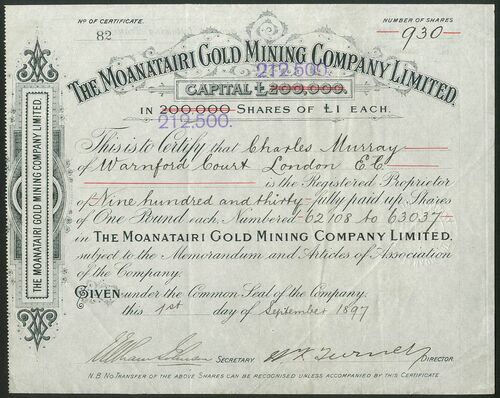 No OF CERTIFICATE.
82
NUMBER OF SHARES
930
THE MOANATAIRI GOLD MINING COMPANY LIMITED.
212.500.
CAPITAL £200,000.
IN 200,000 SHARES OF £1 EACH.
212.500.
This is to Certify that Charles Murray
of Warnford Court London E.C.
is the Registered Proprietor
of Nine hundred and thirty fully paid up Shares
of One Pound each, Numbered 62108 to 63037
in THE MOANATAIRI GOLD MINING COMPANY LIMITED,
subject to the Memorandum and Articles of Association
of the Company.
GIVEN under the Common Seal of the Company.
this 1st day of September 1897
SECRETARY.
DIRECTOR.
N.B. NO TRANSFER OF THE ABOVE SHARES CAN BE RECOGNISED UNLESS ACCOMPANIED BY THIS CERTIFICATE
THE MOANATAIRI GOLD MINING COMPANY LIMITED.